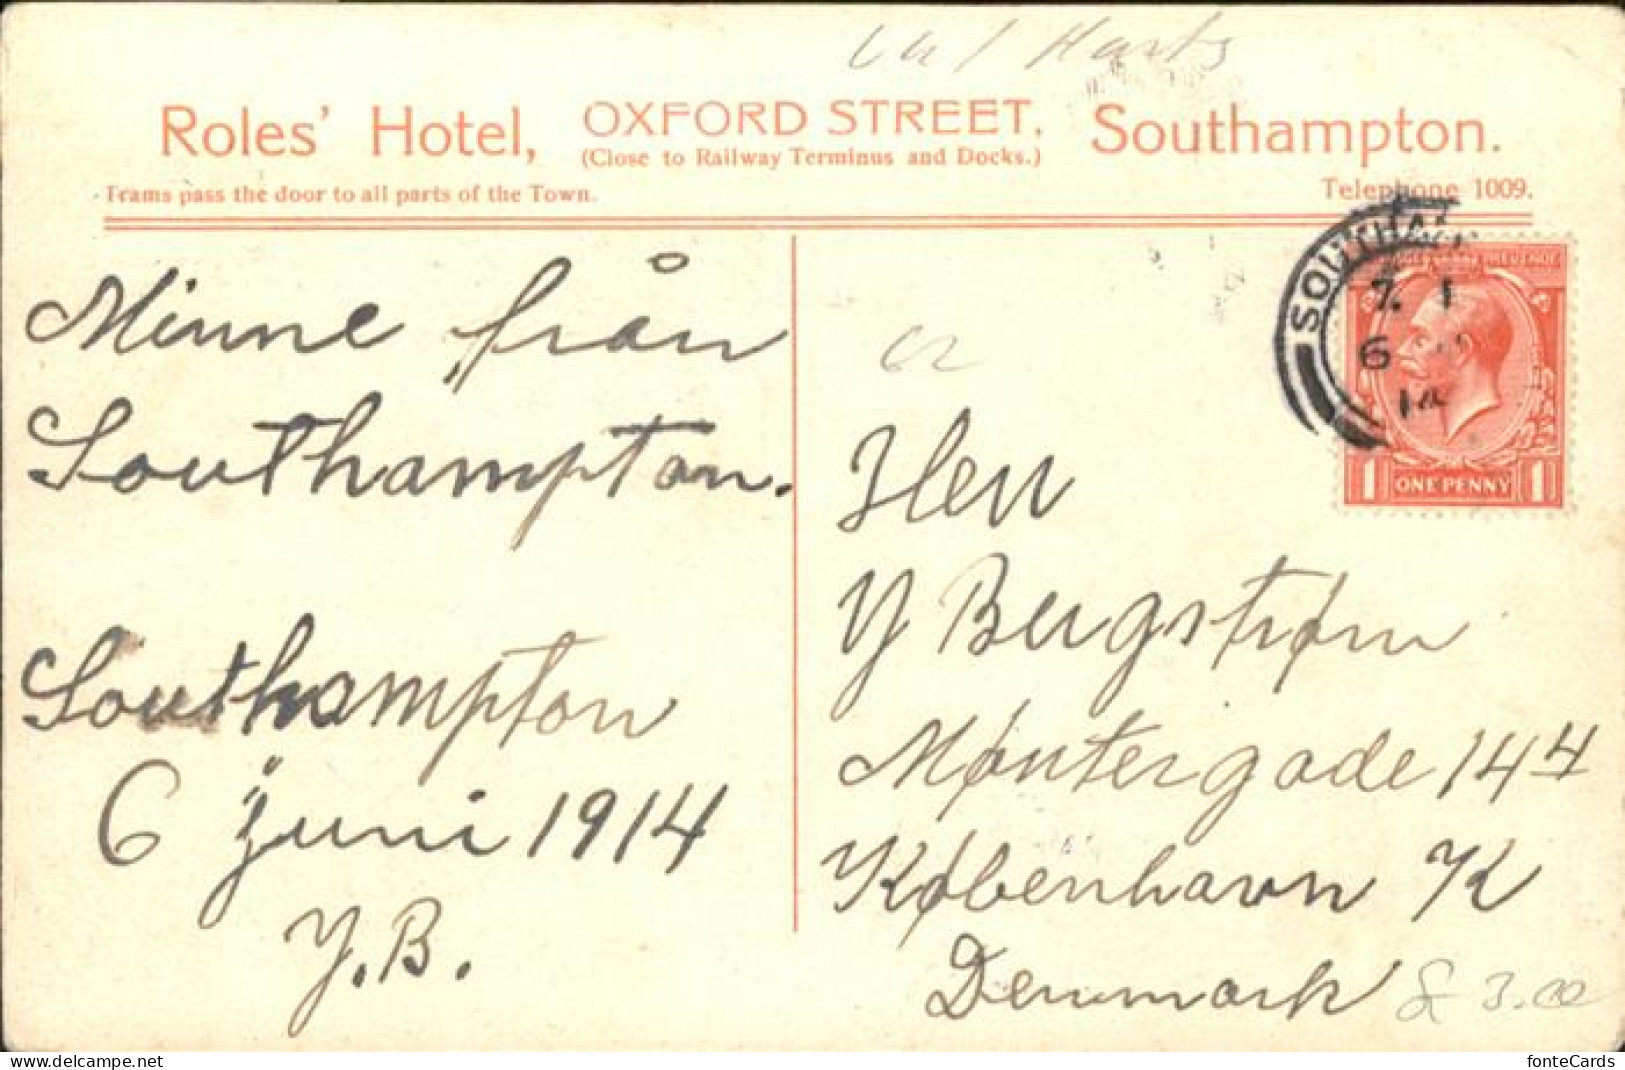 Roles' Hotel, OXFORD STREET, Southampton.
(Close to Railway Terminus and Docks.)
Trams pass the door to all parts of the Town.
Telephone 1009.
Minne från
Southampton.
Southampton
6 Juni 1914
Y.B.
SOUTHA
6
14
ONE PENNY
1 1
Herr
Y Bergstrøm
Møntergade 14 4
København K
Denmark
£ 3.00
delcampe.net
fonteCards